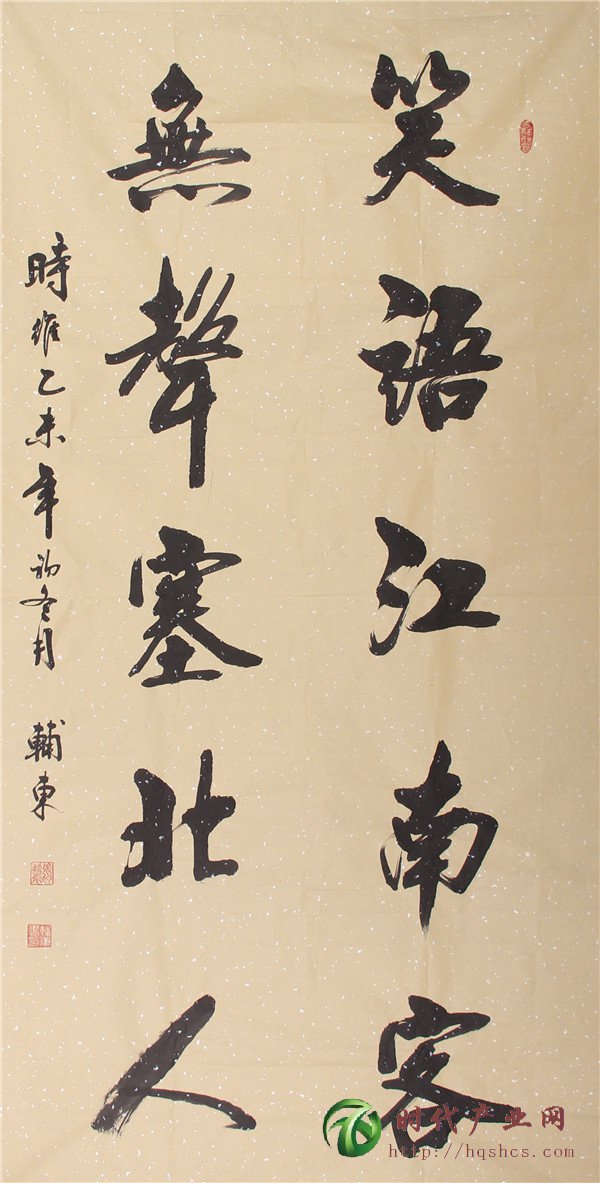 笑語江南客
無聲塞北人
時維乙未年初冬月 輔東
时代产业网
http://hqshcs.com